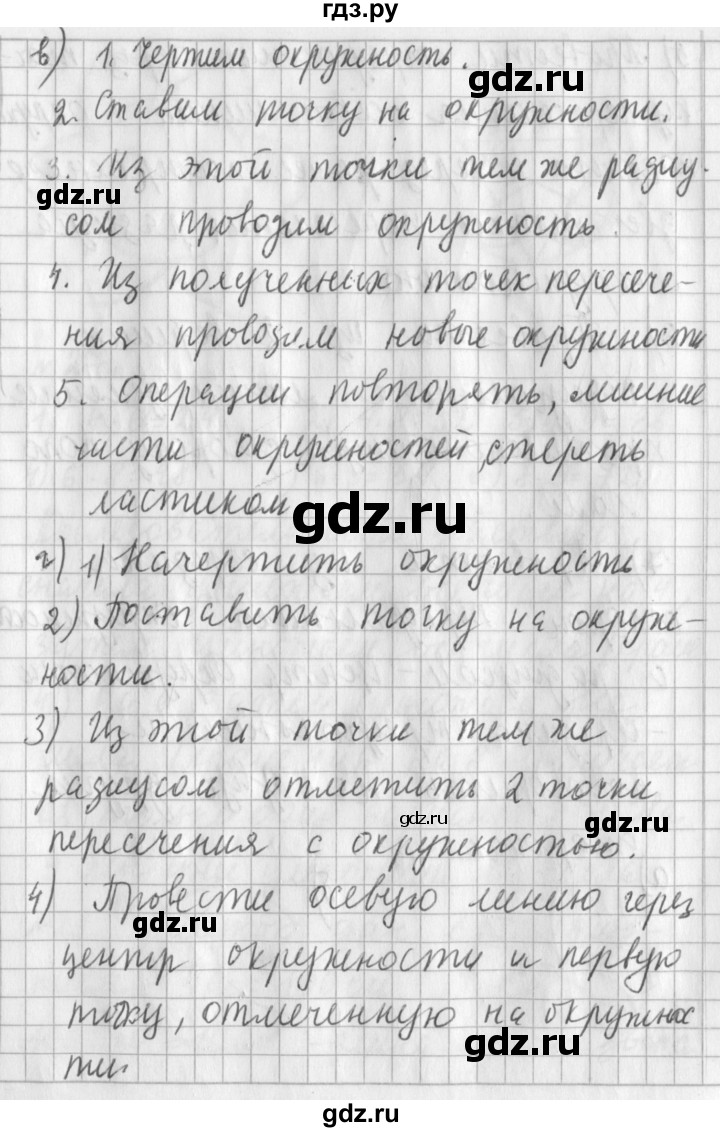 гдз.ру
в) 1. Чертим окружность.
gdz.ru
2. Ставим точку на окружности.
3. Из этой точки тем же радиу-
gdz.ru
сом проводим окружность.
4. Из полученных точек пересече-
ния проводим новые окружности
5. Операции повторять, лишние
части окружностей стереть
ластиком
gdz.ru
г) 1) Начертить окружность
2) Поставить точку на окруж-
ности.
3) Из этой точки тем же
радиусом отметить 2 точки
gdz.ru
пересечения с окружностью.
4) Провести осевую линию через
gdz.ru
центр окружности и первую
точку, отмеченную на окружнос
gdz.ru
ти.
gdz.ru